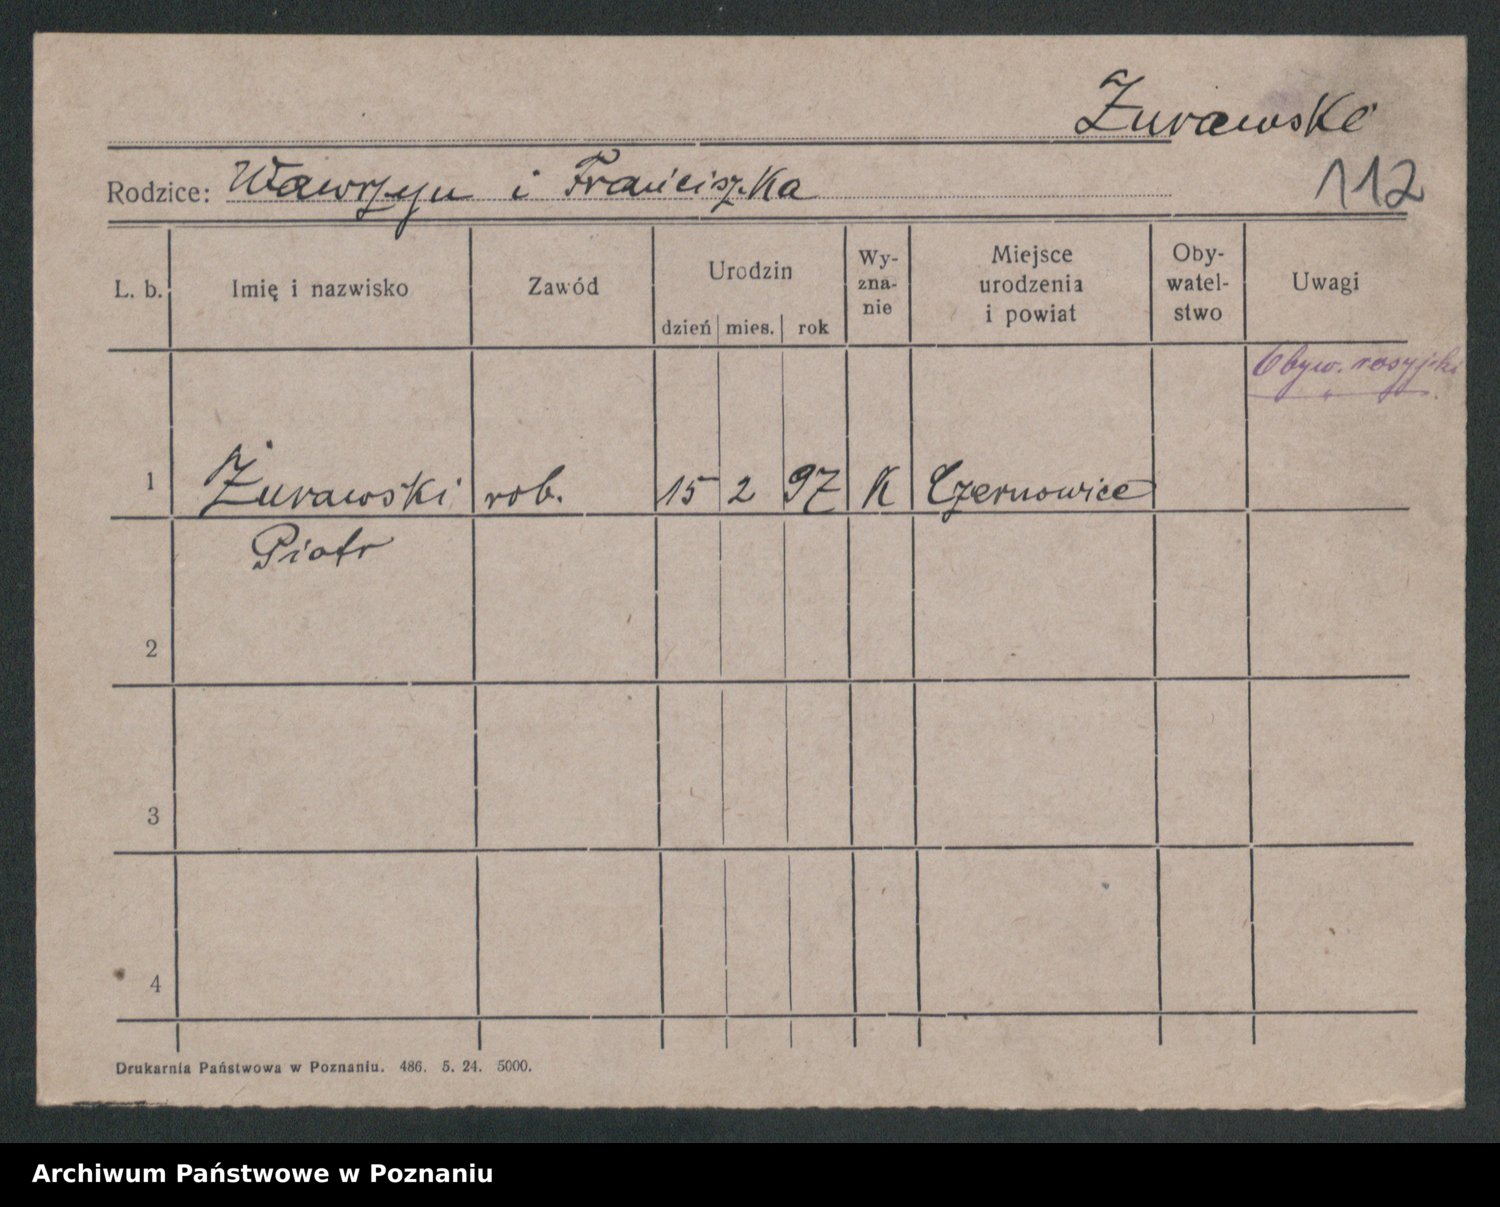 Żurawski
Rodzice: Wawrzyn i Franciszka
112
L. b. Imię i nazwisko Zawód Urodzin dzień mies. rok Wy-zna-nie Miejsce urodzenia i powiat Oby-watel-stwo Uwagi
Obyw. rosyjski
1 Żurawski rob. 15 2 97 K Czernowice
Piotr
2
3
4
Drukarnia Państwowa w Poznaniu. 486. 5. 24. 5000.
Archiwum Państwowe w Poznaniu